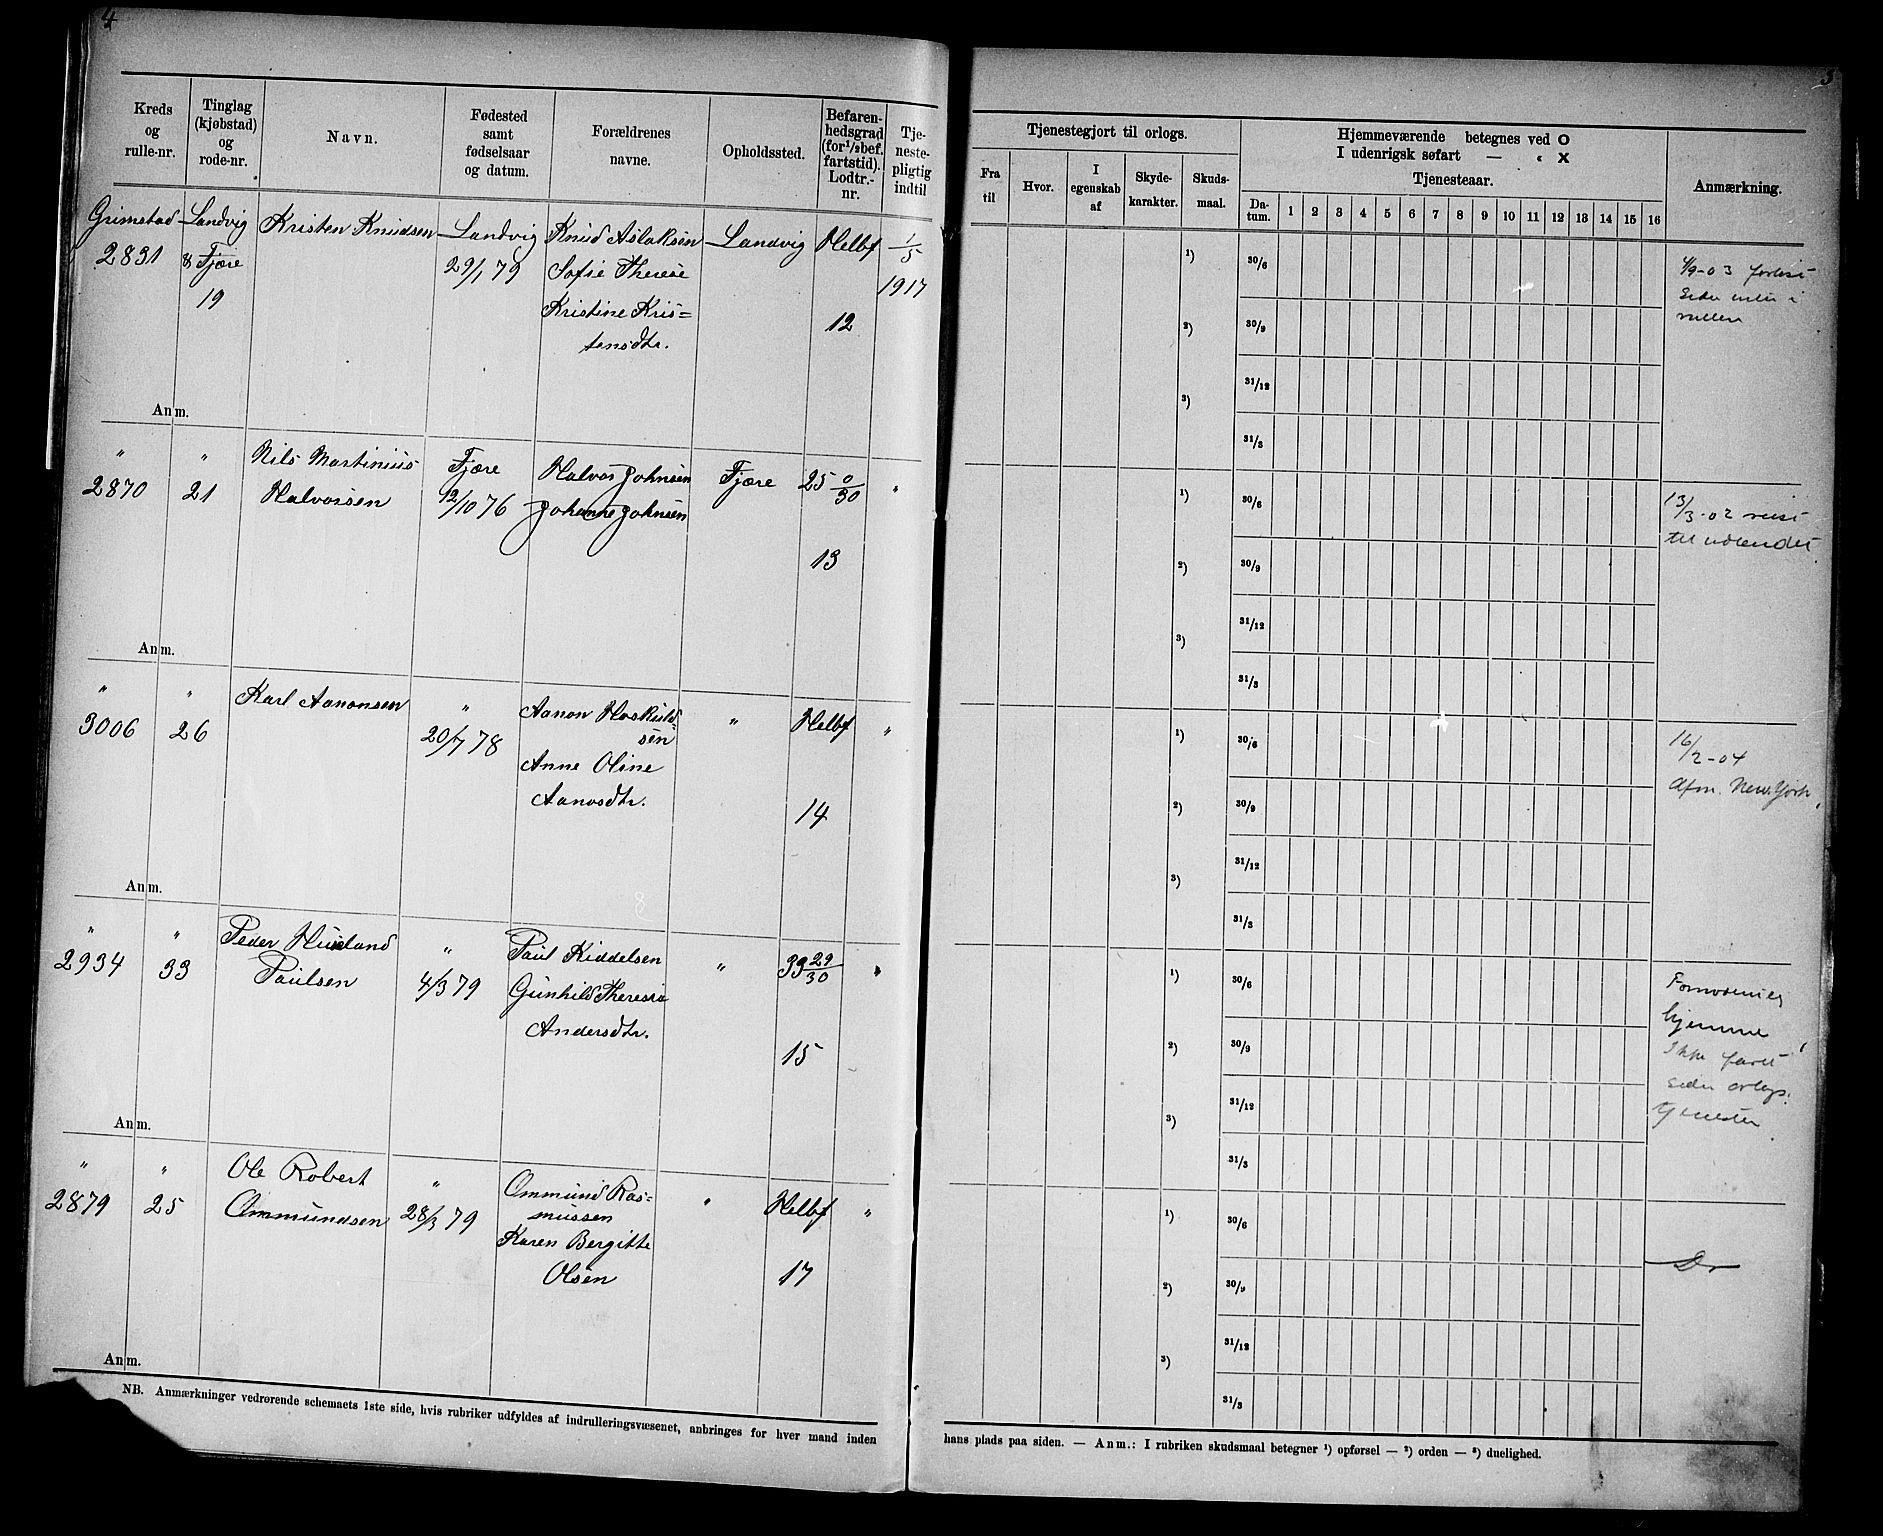 4
Kreds og rulle-nr.
Tinglag (kjøbstad) og rode-nr.
Navn.
Fødested samt fødselsaar og datum.
Forældrenes navne.
Opholdssted.
Befaren-hedsgrad (for 1/2 bef. fartstid). Lodtr.-nr.
Tje-neste-pligtig indtil
Grimstad Landvig Kristen Knudsen Landvig Knud Aslaksen Landvig Helbf 1/5
2831 & Fjære 29/1 79 Sofie Therese 1917
19 Kristine Kris= 12
tensdtr.
Anm.
" " Nils Martinius Fjære Halvor Johnsen Fjære 25 0/30 "
2870 21 Halvorsen 12/10 76 Johanne Johnsen
13
Anm.
" " Karl Aanonsen " Aanon Hoskuld= " Helbf "
3006 26 20/7 78 sen
Anne Oline
Aanosdtr. 14
Anm.
" " Peder " Paul Kiddelsen " 33 29/30 "
2934 33 Paulsen 4/3 79 Gunhild Theresia
Andersdtr.
15
Anm.
" " Ole Robert " Ommund Ras= " Helbf "
2879 25 Ommundsen 28/3 79 mussen
Karen Bergitte
Olsen 17
Anm.
NB. Anmærkninger vedrørende schemaets 1ste side, hvis rubriker udfyldes af indrulleringsvæsenet, anbringes for hver mand inden
3
Tjenestegjort til orlogs.
Fra til
Hvor.
I egenskab af
Skyde-karakter.
Skuds-maal.
Hjemmeværende betegnes ved O
I udenrigsk søfart — " X
Tjenesteaar.
Da-tum. 1 2 3 4 5 6 7 8 9 10 11 12 13 14 15 16
Anmærkning.
1) 30/6
2) 30/9
3) 31/12
31/3
4/9-03 forlist
siden
rullen
1) 30/6
2) 30/9
3) 31/12
31/3
13/3-02 reist
til udlandet
1) 30/6
2) 30/9
3) 31/12
31/3
16/2-04
Afm. New York
1) 30/6
2) 30/9
3) 31/12
31/3
Formodentlig
hjemme
Ikke faret
siden orlogs:
tjenesten
1) 30/6
2) 30/9
3) 31/12
31/3
hans plads paa siden. — Anm.: I rubriken skudsmaal betegner 1) opførsel — 2) orden — 3) duelighed.